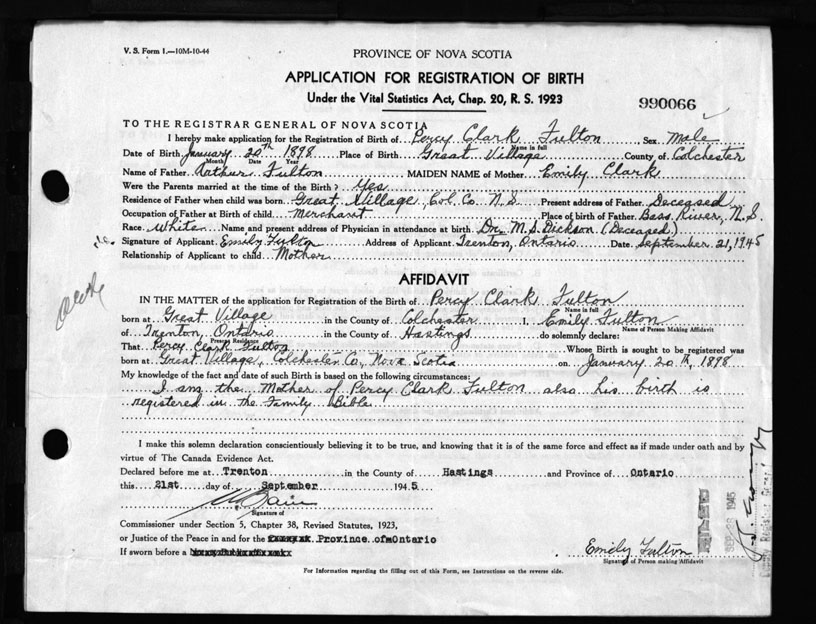 V. S. Form 1.—10M-10-44
PROVINCE OF NOVA SCOTIA
APPLICATION FOR REGISTRATION OF BIRTH
Under the Vital Statistics Act, Chap. 20, R. S. 1923
990066
TO THE REGISTRAR GENERAL OF NOVA SCOTIA
I hereby make application for the Registration of Birth of Percy Clark Fulton Sex Male
Name in full
Date of Birth January 20th 1898 Place of Birth Great Village County of Colchester
Month Date Year
Name of Father Arthur Fulton MAIDEN NAME of Mother Emily Clark
Were the Parents married at the time of the Birth? Yes
Residence of Father when child was born Great Village, Col. Co. N.S. Present address of Father Deceased
Occupation of Father at Birth of child Merchant Place of birth of Father Bass River, N.S.
Race White Name and present address of Physician in attendance at birth Dr. M.S. Dickson (Deceased)
Signature of Applicant Emily Fulton Address of Applicant Trenton, Ontario Date September 21, 1945
Relationship of Applicant to child Mother
AFFIDAVIT
IN THE MATTER of the application for Registration of the Birth of Percy Clark Fulton
Name in full
born at Great Village in the County of Colchester I, Emily Fulton
Name of Person Making Affidavit
of Trenton, Ontario in the County of Hastings do solemnly declare:
Present Residence
That Percy Clark Fulton Whose Birth is sought to be registered was
born at Great Village, Colchester Co., Nova Scotia on January 20th, 1898
My knowledge of the fact and date of such Birth is based on the following circumstances:
I am the Mother of Percy Clark Fulton also his birth is
registered in the Family Bible
I make this solemn declaration conscientiously believing it to be true, and knowing that it is of the same force and effect as if made under oath and by
virtue of The Canada Evidence Act.
Declared before me at Trenton in the County of Hastings and Province of Ontario
this 21st day of September 1945
Signature of
Commissioner under Section 5, Chapter 38, Revised Statutes, 1923,
or Justice of the Peace in and for the Province of Ontario
If sworn before a
Emily Fulton
Signature of Person making Affidavit
For Information regarding the filling out of this Form, see Instructions on the reverse side.